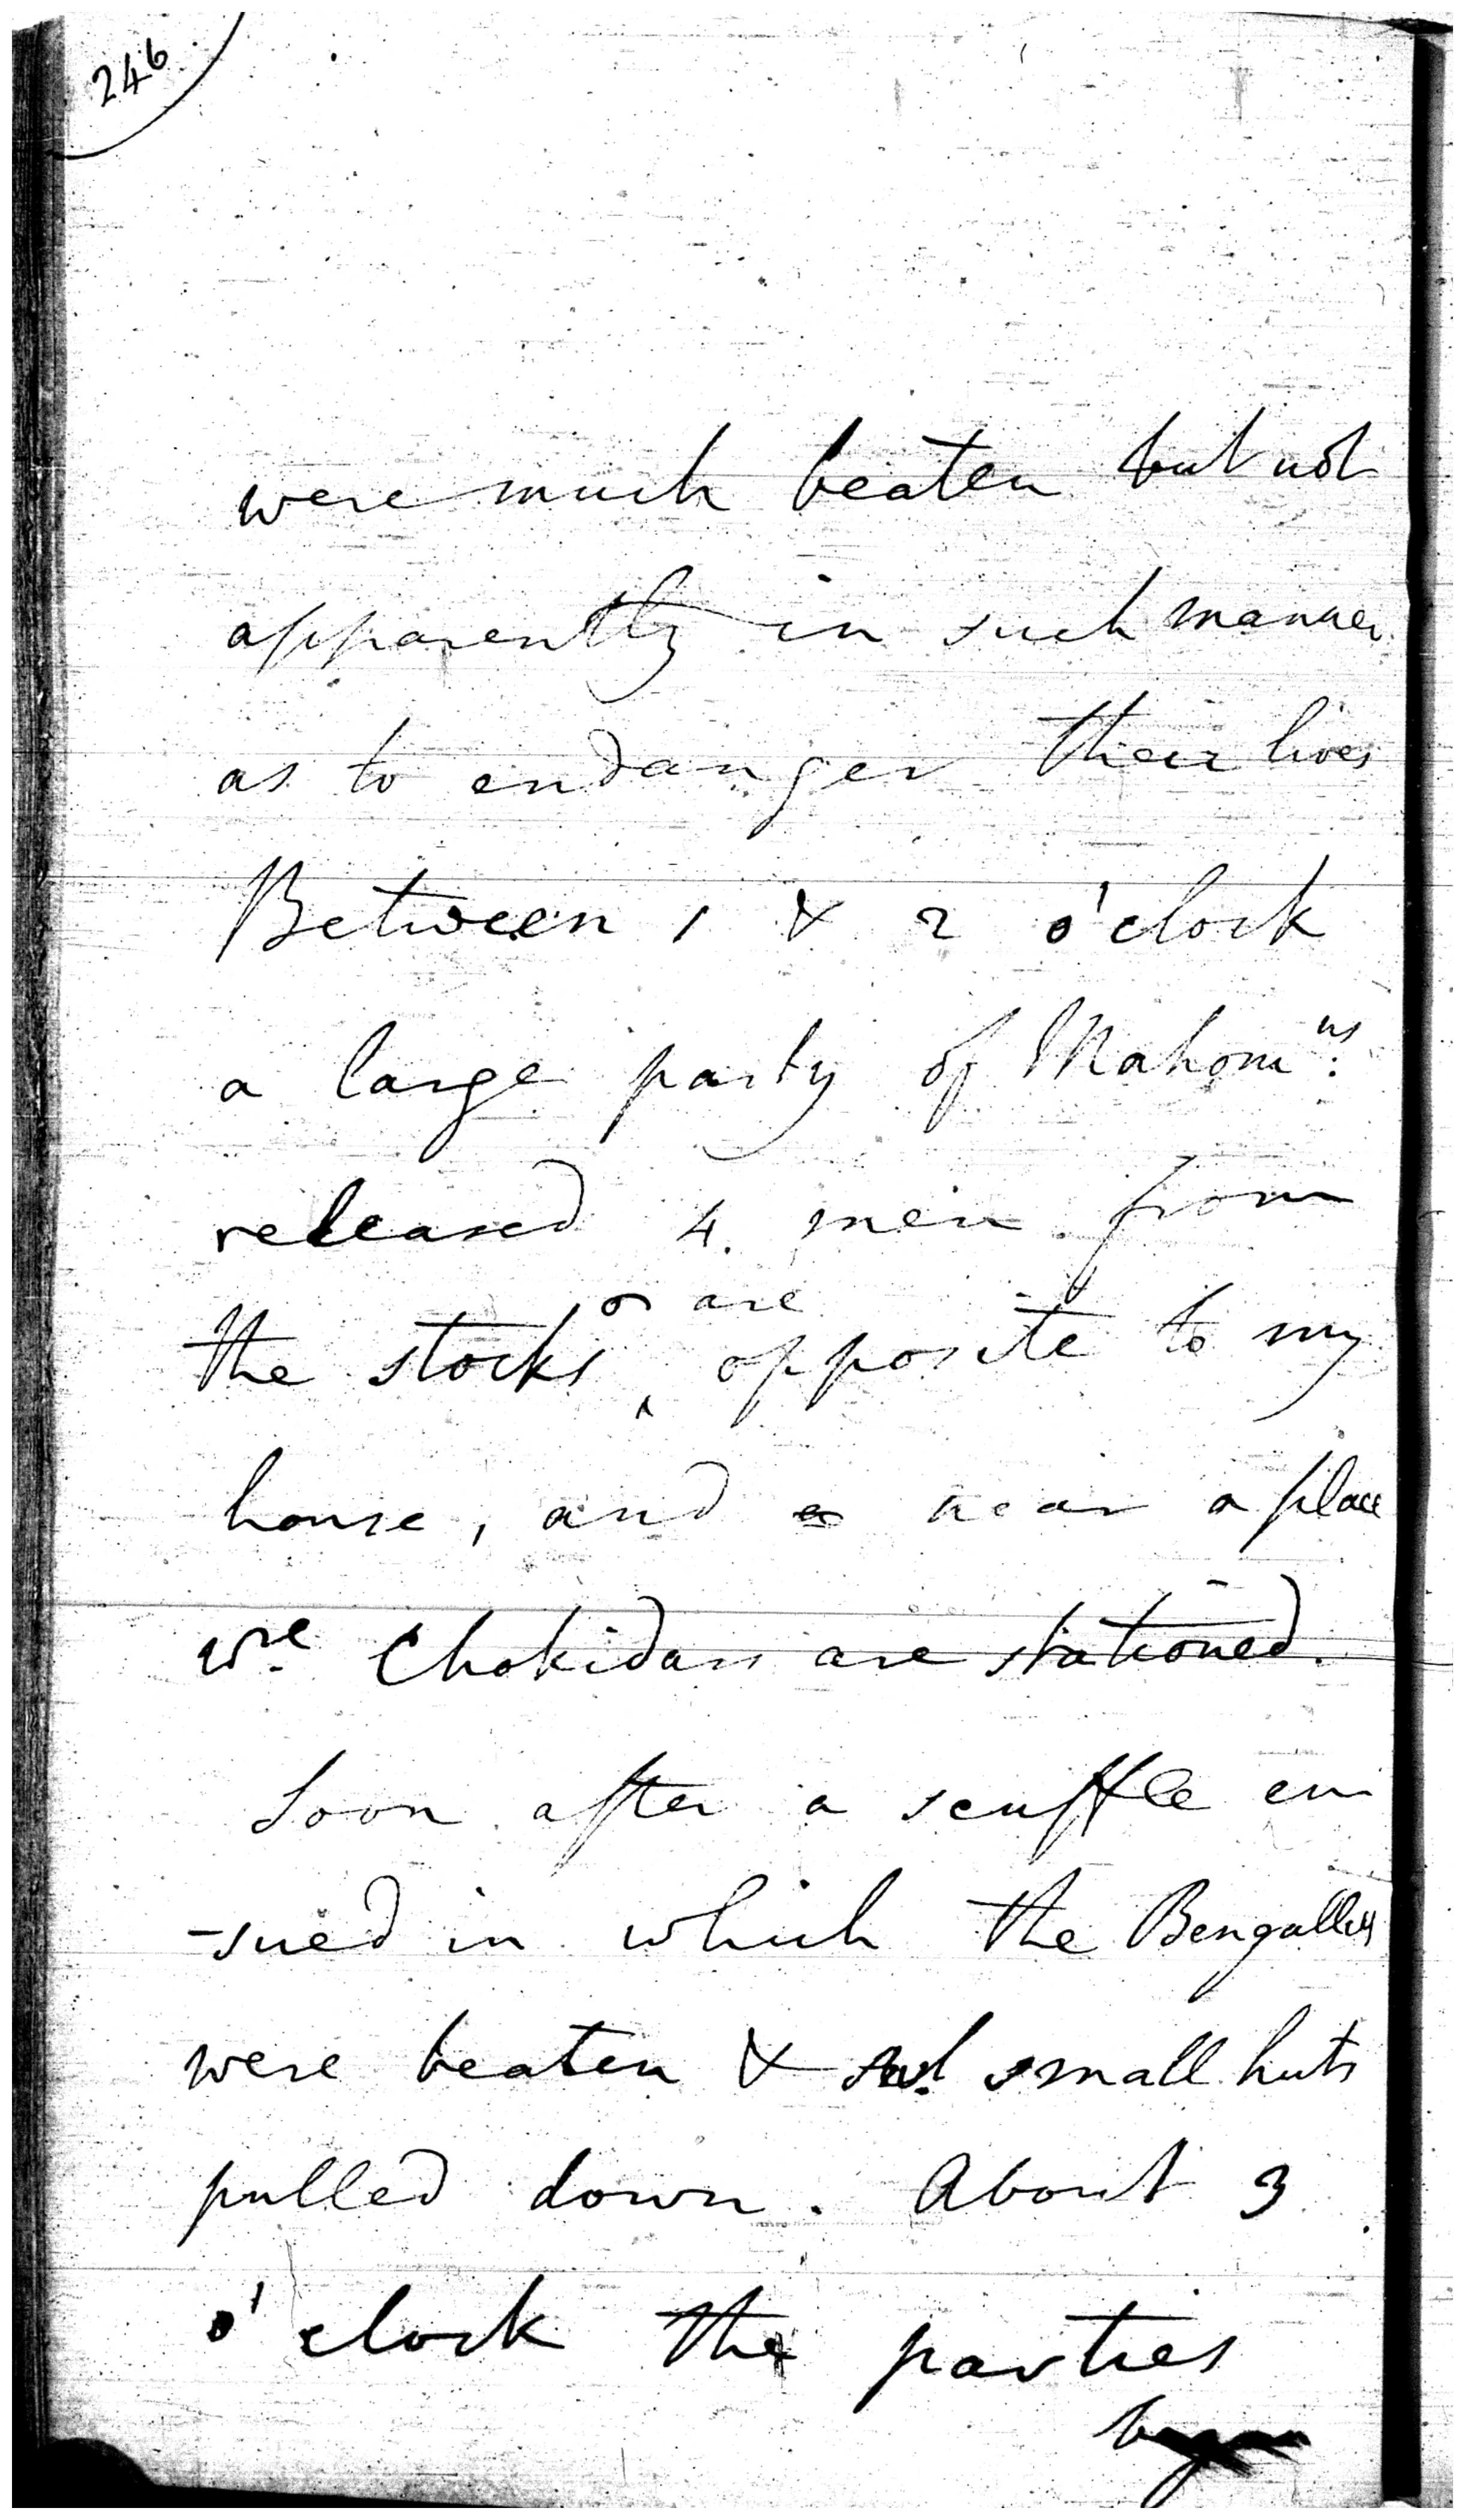 246
were much beaten but not
apparently in such manner
as to endanger their lives
Between 1 & 2 o'clock
a large party of Mahomns.
released 4 men from
are
the stocks opposite to my
house, and near a place
wre Chokidars are stationed.
Soon after a scuffle en
-sued in which the Bengallies
were beaten & small huts
pulled down. About 3
o'clock the parties